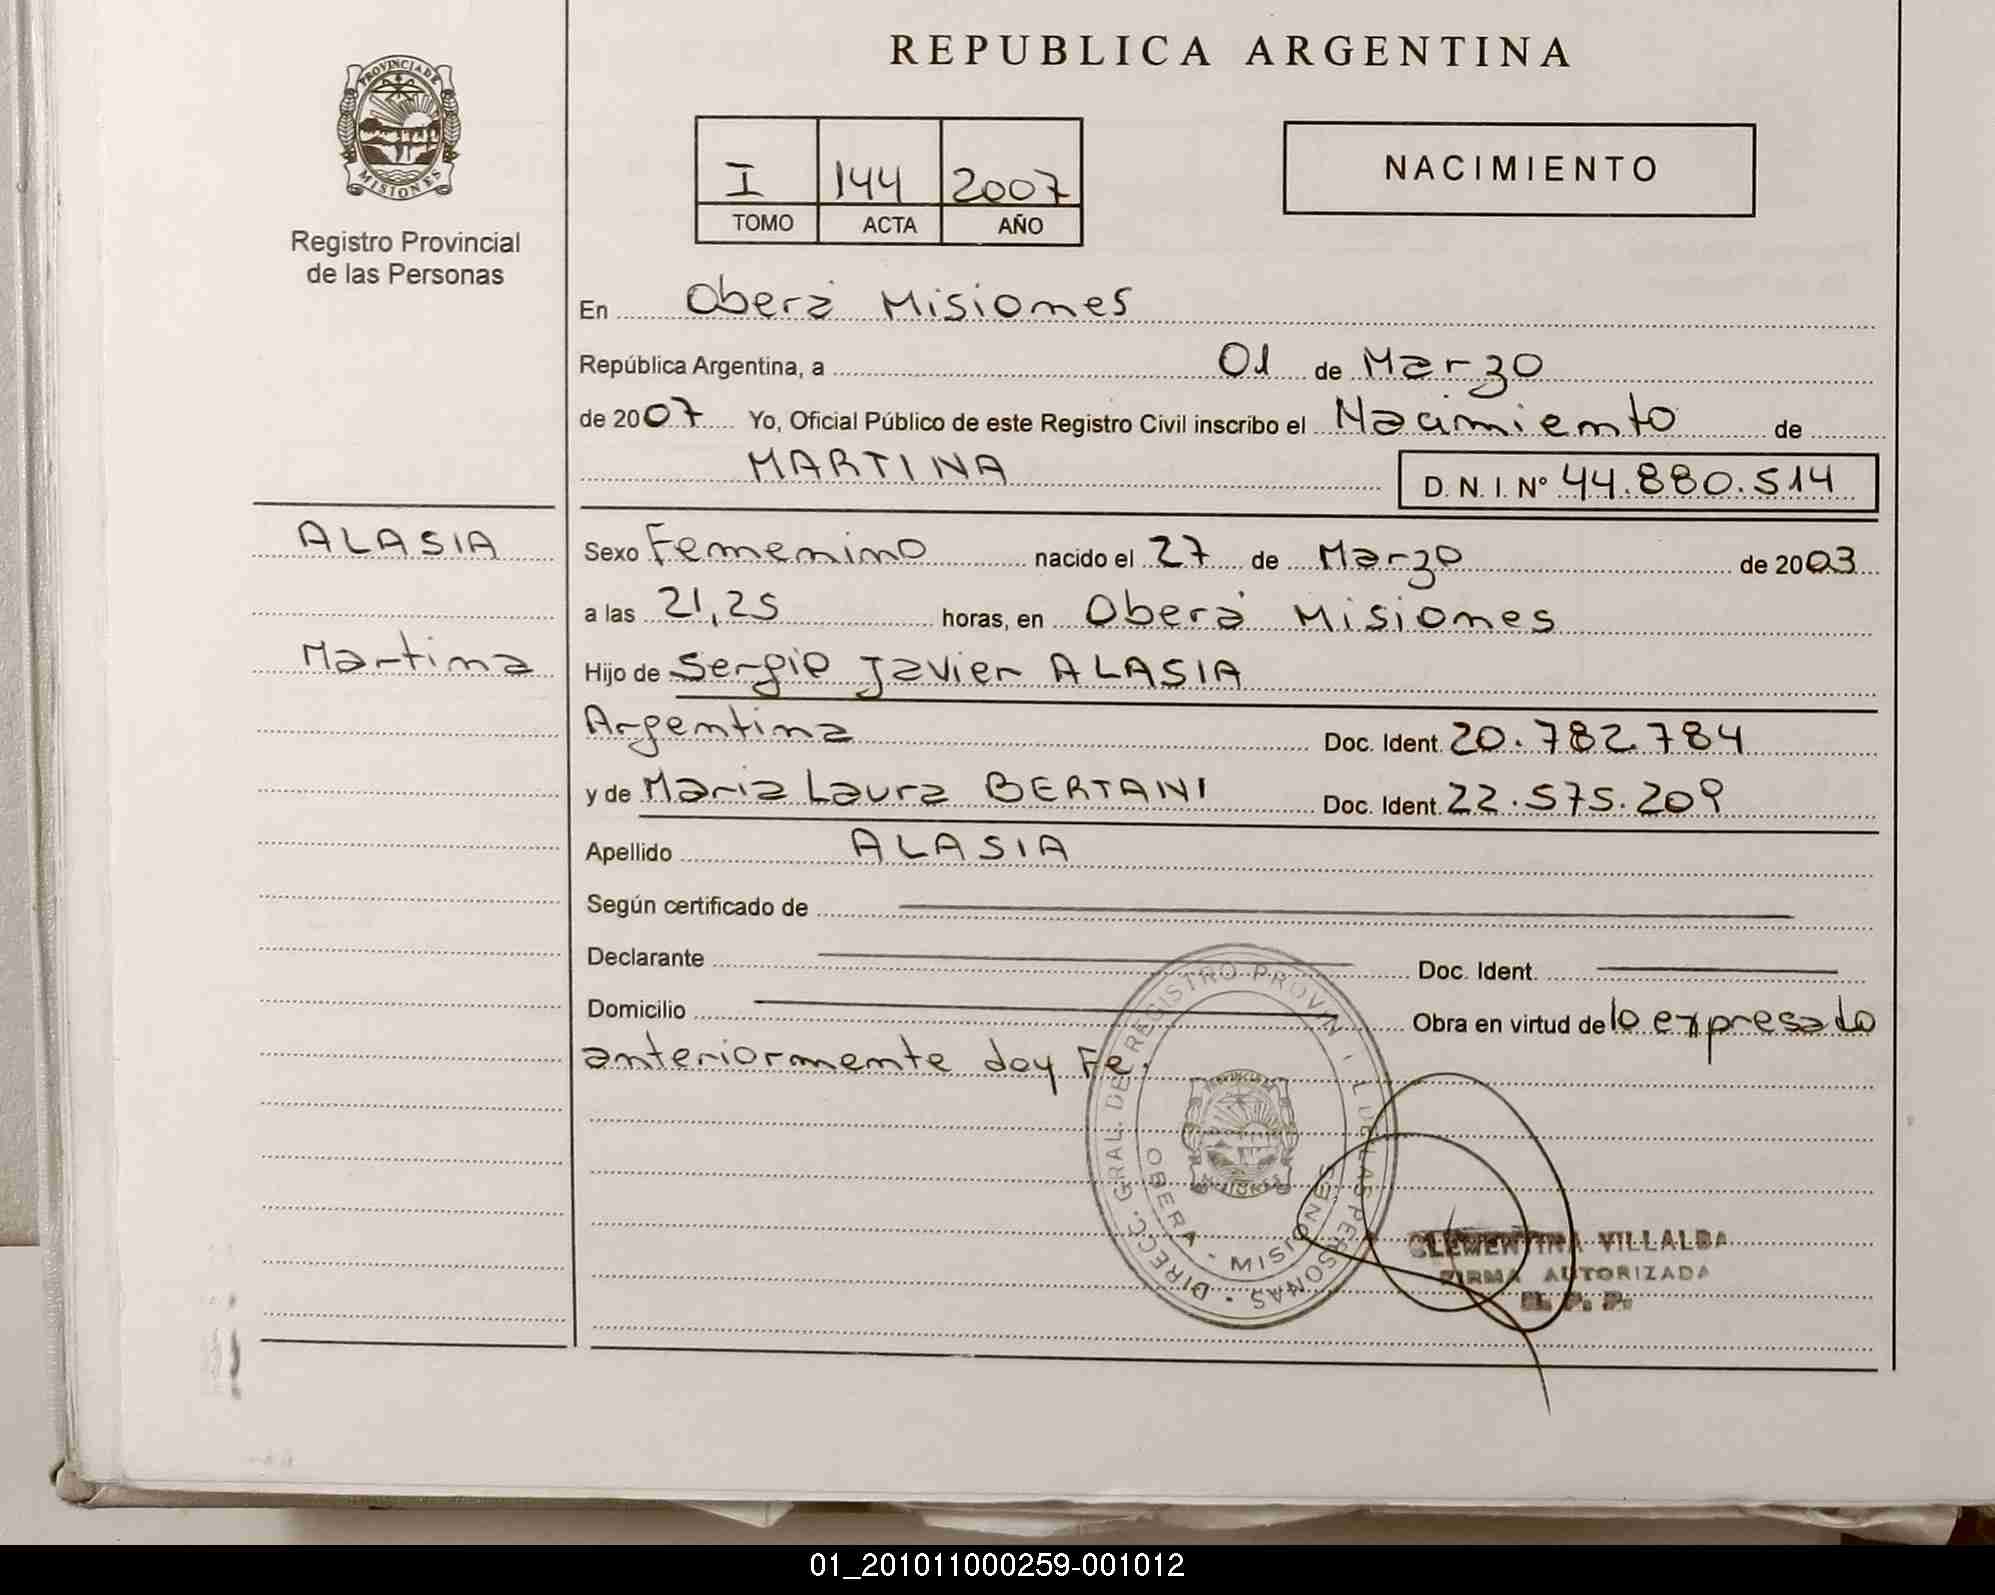 REPUBLICA ARGENTINA
PROVINCIA DE
MISIONES
Registro Provincial
de las Personas
I 144 2007
TOMO ACTA AÑO
NACIMIENTO
En Oberá Misiones
República Argentina, a 01 de Marzo
de 2007 Yo, Oficial Público de este Registro Civil inscribo el Nacimiento de
MARTINA D. N. I. Nº 44.880.514
ALASIA
Martina
Sexo Femenino nacido el 27 de Marzo de 2003
a las 21,25 horas, en Oberá Misiones
Hijo de Sergio Javier ALASIA
Argentina Doc. Ident. 20.782.784
y de Maria Laura BERTANI Doc. Ident. 22.575.209
Apellido ALASIA
Según certificado de
Declarante Doc. Ident.
Domicilio Obra en virtud de lo expresado
anteriormente doy Fe.
DIRECC. GRAL. DE REGISTRO PROVINCIAL DE LAS PERSONAS
OBERA - MISIONES
CLEMENTINA VILLALBA
FIRMA AUTORIZADA
R. P. P.
01_201011000259-001012